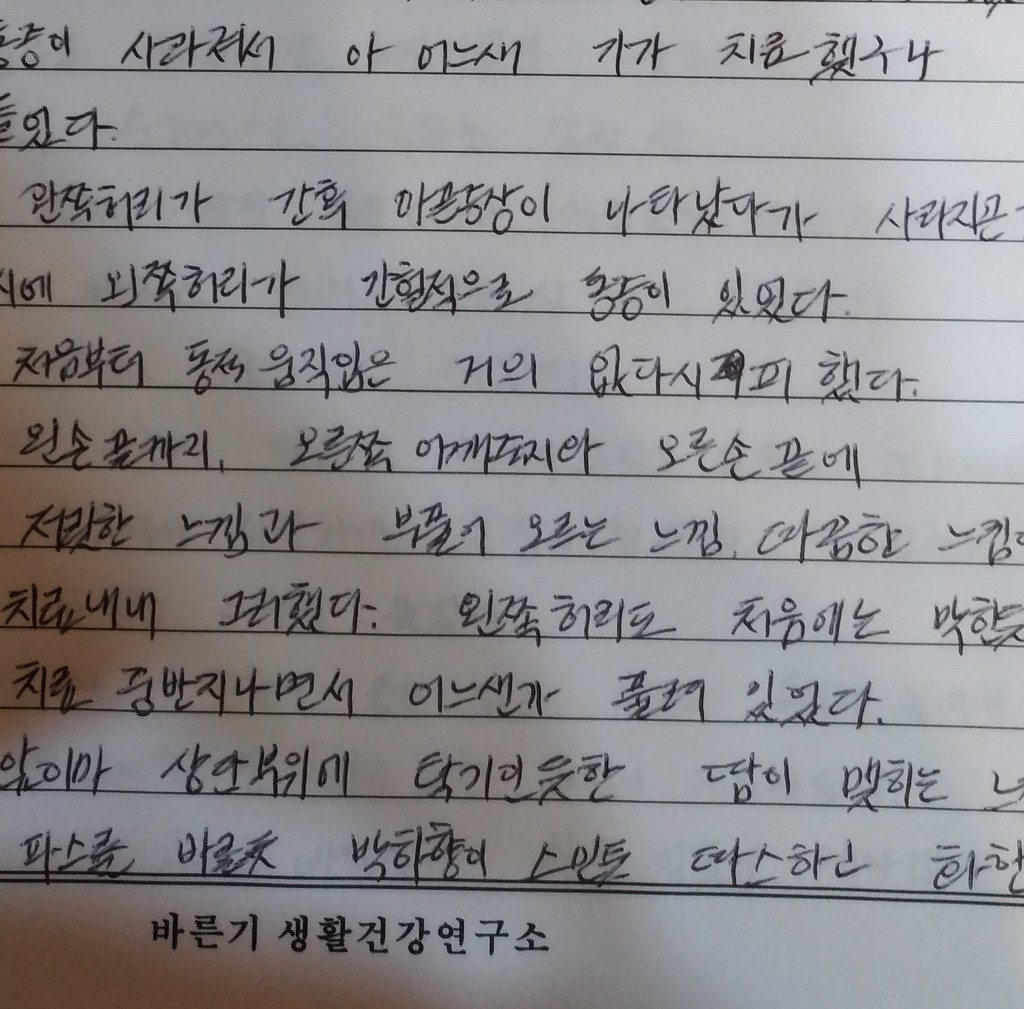 통증이 사라져서 아 어느새 기가 치료했구나
들었다.
간혹 나타났다가 사라지곤
시에 왼쪽허리가 간헐적으로 통증이 있었다.
처음부터 동적 움직임은 거의 없다시피 했다.
왼손 끝까지, 오른쪽 어깨 오른손 끝에
저릿한 느낌과 부풀어 오르는 느낌, 따끔한 느낌
치료내내 그러했다. 왼쪽허리도 처음에는 막힌듯
치료 중반지나면서 어느샌가 풀려 있었다.
앞이마 상단부위에 듯한 땀이 맺히는 느
파스를 바른듯 박하향이 스민듯 따스하고 화한
바른기 생활건강연구소